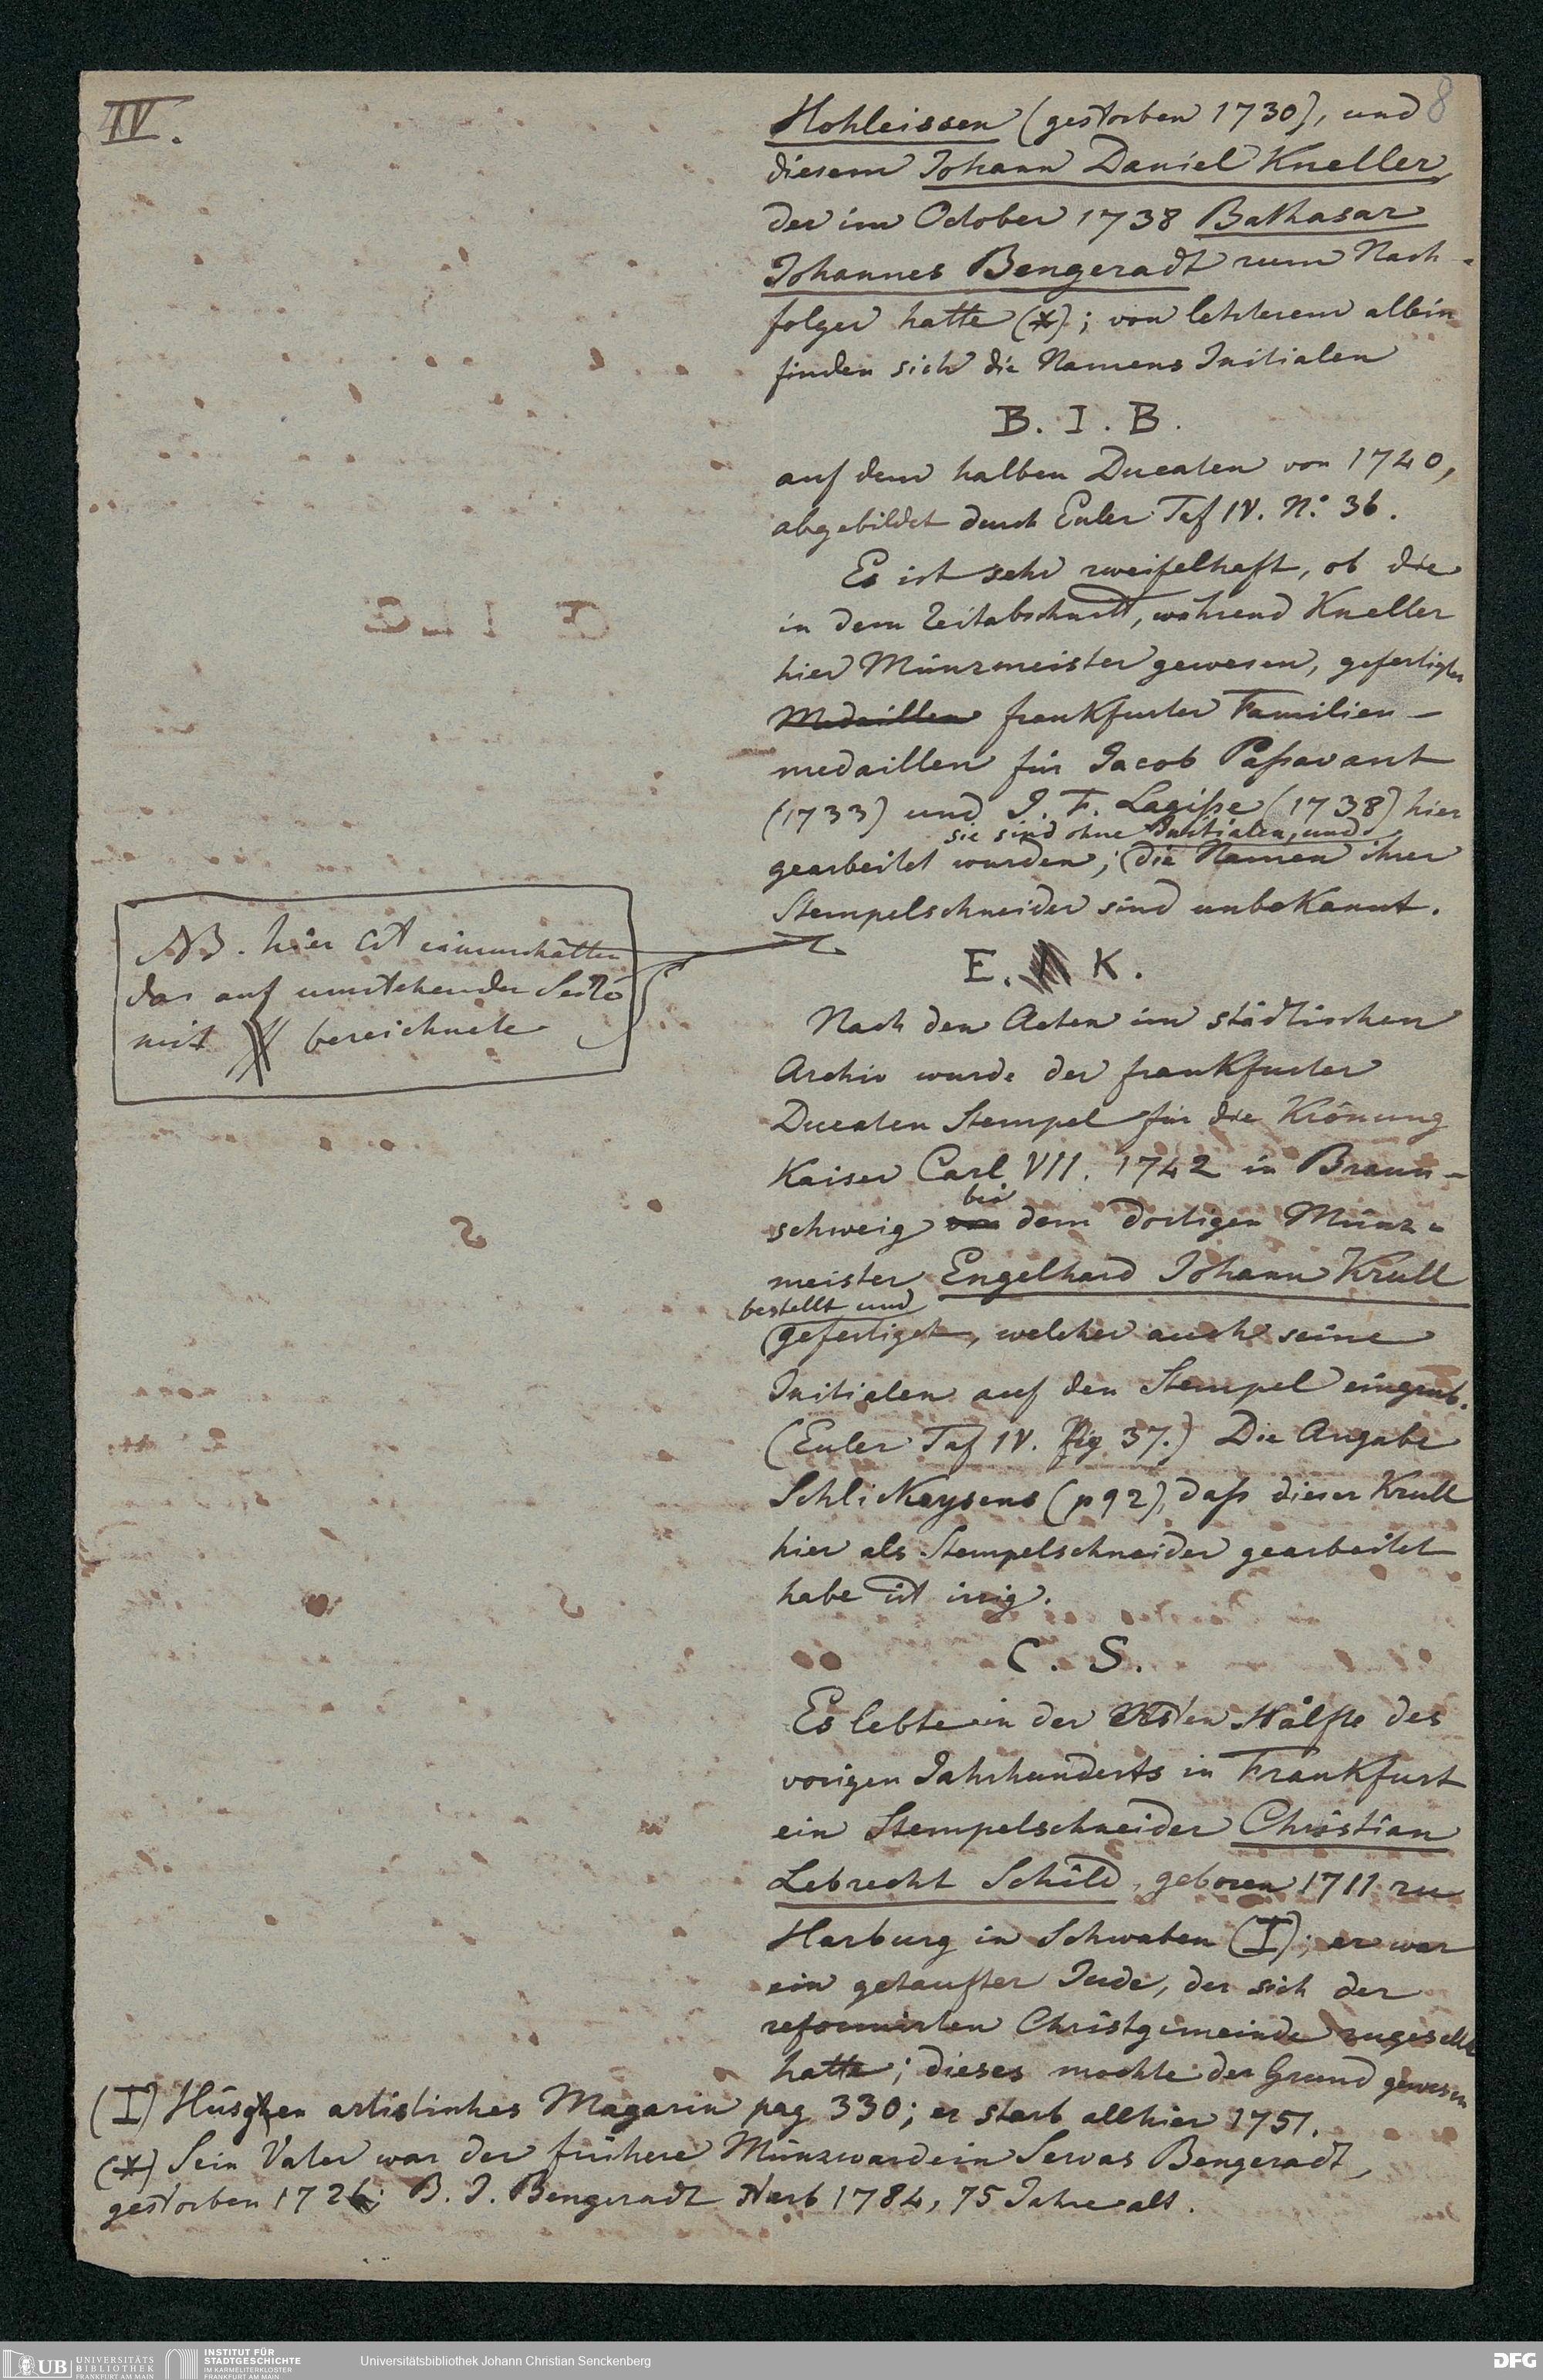 IV.
8
Hohleissen (gestorben 1730), und
diesem Johann Daniel Kneller,
der im October 1738 Balthasar
Johannes Bengeradt zum Nach-
folger hatte (*); von letzterem allein
finden sich die Namens Initialen
B. I. B.
auf dem halben Ducaten von 1740,
abgebildet durch Euler Taf IV. No. 36.
Es ist sehr zweifelhaft, ob die
in dem Zeitabschnitt, während Kneller
hier Münzmeister gewesen, gefertigten
Medaillen frankfurter Familien-
medaillen für Jacob Paßavant
(1733) und J. F. Lagiße (1738) hier
sie sind ohne Initialen, und
gearbeitet wurden; die Namen ihrer
Stempelschneider sind unbekannt.
NB. hier ist einzuschalten
das auf umstehender Seite
mit bezeichnete
E. K.
Nach den Acten im städtischen
Archiv wurde der frankfurter
Ducaten Stempel für die Krönung
Kaiser Carl VII. 1742 in Braun-
bei
schweig von dem dortigen Münz-
meister Engelhard Johann Krull
bestellt und
gefertiget, welcher auch seine
Initialen auf den Stempel eingrub.
(Euler Taf IV. Fig 37.) Die Angabe
Schlickeysens (p 92), daß dieser Krull
hier als Stempelschneider gearbeitet
habe ist irrig.
C. S.
Es lebte in der ersten Hälfte des
vorigen Jahrhunderts in Frankfurt
ein Stempelschneider Christian
Lebrecht Schild, geboren 1711 zu
Harburg in Schwaben (I); er war
ein getaufter Jude, der sich der
reformirten Christgemeinde zugesellt
hatte; dieses mochte der Grund gewesen
(I) Hüsgen artistisches Magazin pag 330; er starb allhier 1751.
(*) Sein Vater war der frühere Münzwardein Servas Bengeradt,
gestorben 1726; B. J. Bengeradt starb 1784, 75 Jahre alt.
UB UNIVERSITÄTS
BIBLIOTHEK
FRANKFURT AM MAIN
INSTITUT FÜR
STADTGESCHICHTE
IM KARMELITERKLOSTER
FRANKFURT AM MAIN
Universitätsbibliothek Johann Christian Senckenberg
DFG